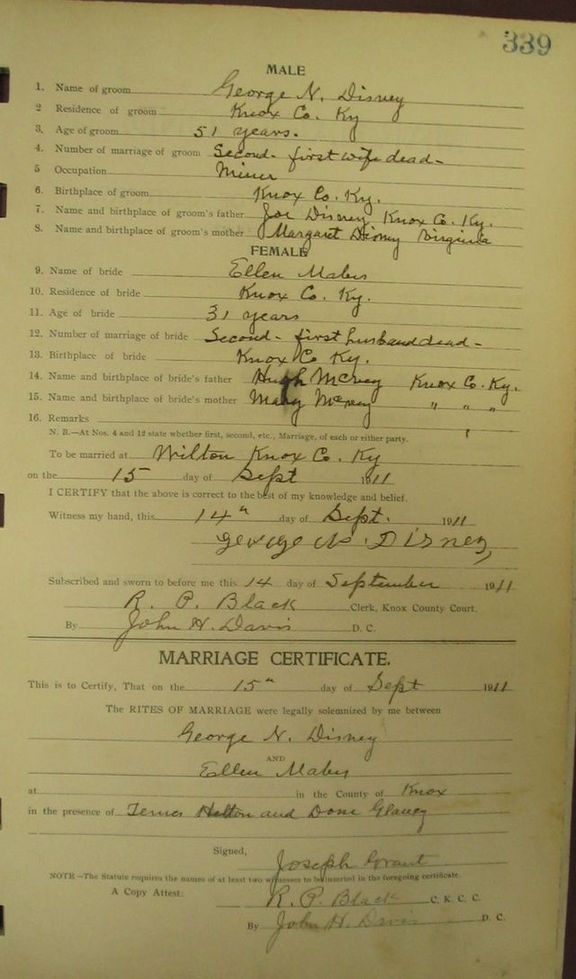 339
MALE
1. Name of groom George N. Disney
2 Residence of groom Knox Co. Ky
3. Age of groom 51 years.
4. Number of marriage of groom Second - first wife dead -
5 Occupation Miner
6. Birthplace of groom Knox Co. Ky.
7. Name and birthplace of groom's father Joe Disney Knox Co. Ky.
8. Name and birthplace of groom's mother Margaret Disney Virginia
FEMALE
9. Name of bride Ellen
10. Residence of bride Knox Co. Ky.
11. Age of bride 31 years
12. Number of marriage of bride Second - first husband dead -
13. Birthplace of bride Knox Co Ky.
14. Name and birthplace of bride's father Hugh Knox Co. Ky.
15. Name and birthplace of bride's mother Mary " " "
16. Remarks
N. B.—At Nos. 4 and 12 state whether first, second, etc., Marriage, of each or either party.
To be married at Wilton Knox Co. Ky
on the 15 day of Sept 1911
I CERTIFY that the above is correct to the best of my knowledge and belief.
Witness my hand, this 14" day of Sept. 1911
George N. Disney
Subscribed and sworn to before me this 14 day of September 1911
R. P. Black Clerk, Knox County Court.
By John H. Davis D. C.
MARRIAGE CERTIFICATE.
This is to Certify, That on the 15" day of Sept 1911
The RITES OF MARRIAGE were legally solemnized by me between
George N. Disney
AND
Ellen
at in the County of Knox
in the presence of and
Signed,
Joseph Grant
NOTE—The Statute requires the names of at least two witnesses to be inserted in the foregoing certificate.
A Copy Attest: R. P. Black C. K. C. C.
By John H. Davis D. C.